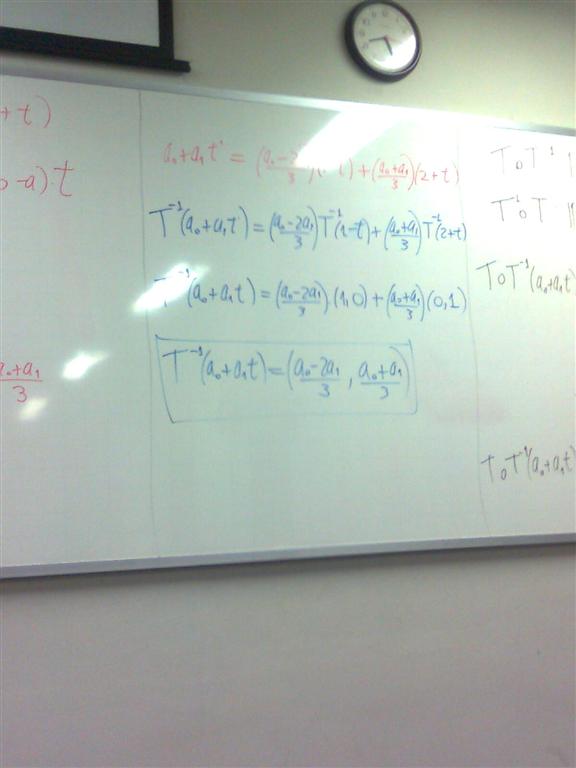 + t)
0-a)·t
a₀+a₁/3
a₀+a₁t = (a₀-2/3)( t)+(a₀+a₁/3)(2+t)
T⁻¹(a₀+a₁t)=(a₀-2a₁/3)T⁻¹(1-t)+(a₀+a₁/3)T⁻¹(2+t)
T⁻¹(a₀+a₁t)=(a₀-2a₁/3).(1,0)+(a₀+a₁/3)(0,1)
T⁻¹(a₀+a₁t)=(a₀-2a₁/3, a₀+a₁/3)
T∘T⁻¹
T⁻¹∘T
T∘T⁻¹(a₀+a₁t)
T∘T⁻¹(a₀+a₁t)